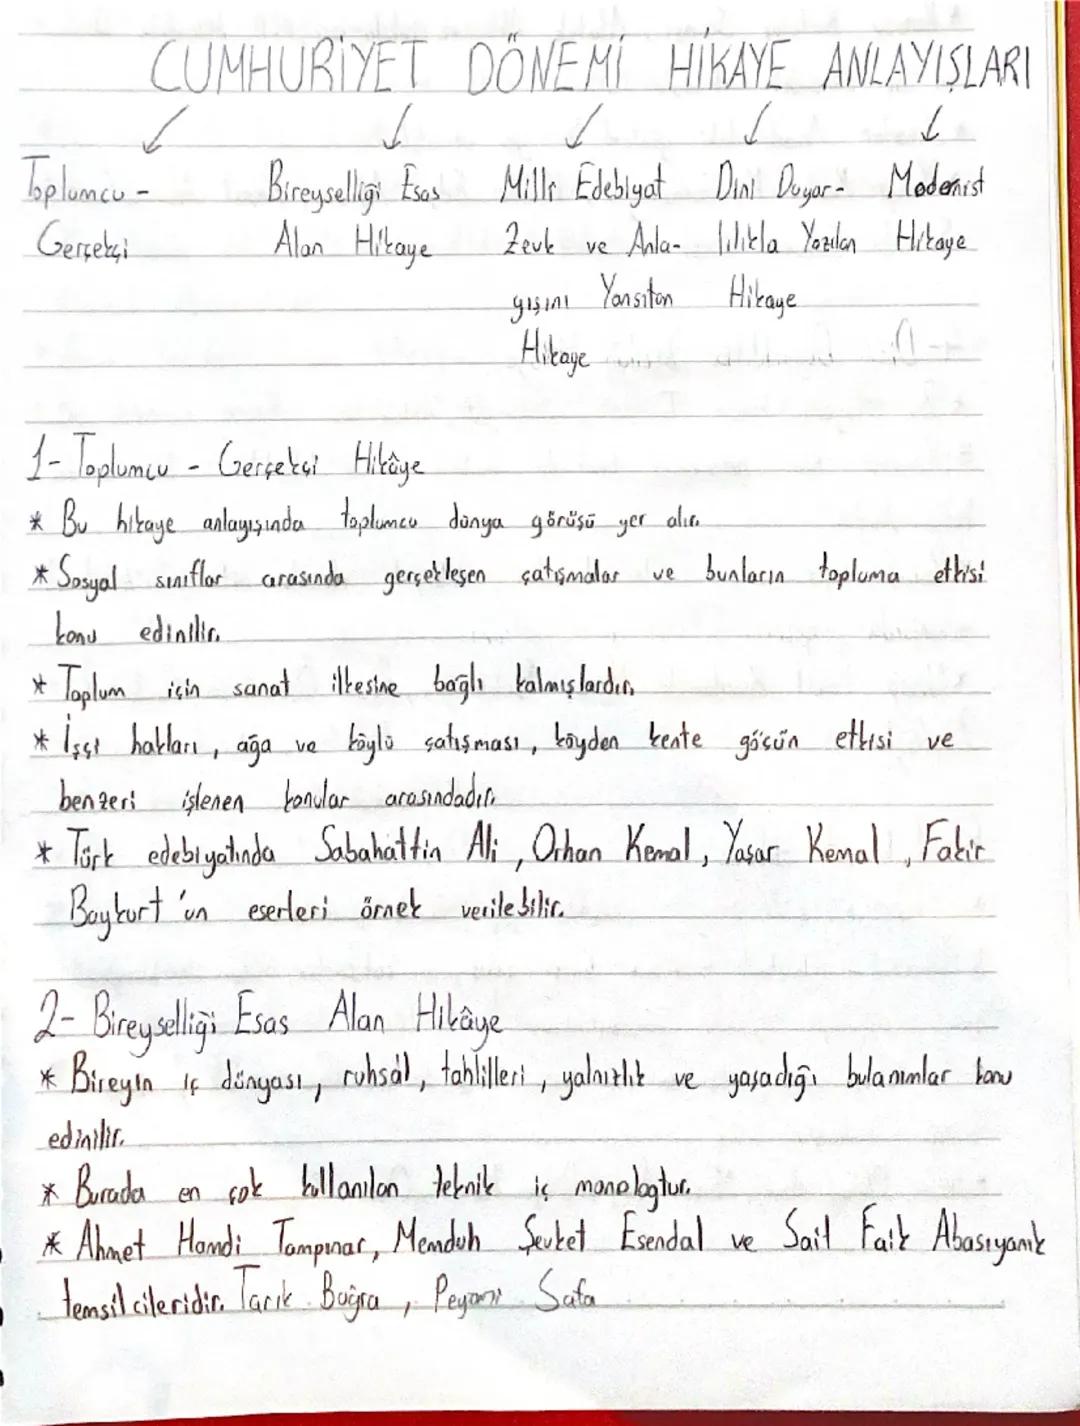 CUMHURİYET DÖNEMİ HİKAYE ANLAYIŞLARI
Toplumcu - Bireyselliği Esas Milli Edebiyat Dini Duyar- Modernist
Gerçekçi Alan Hikaye Zevk ve Anla- lılıkla Yazılan Hikaye
yışını Yansıtan Hikaye
Hikaye
1- Toplumcu - Gerçekçi Hikâye
* Bu hikaye anlayışında toplumcu dünya görüşü yer alır.
* Sosyal sınıflar arasında gerçekleşen çatışmalar ve bunların topluma etkisi
konu edinilir.
* Toplum için sanat ilkesine bağlı kalmışlardır.
* İşçi hakları, ağa ve köylü çatışması, köyden kente göçün etkisi ve
benzeri işlenen konular arasındadır.
* Türk edebiyatında Sabahattin Ali, Orhan Kemal, Yaşar Kemal, Fakir
Baykurt'un eserleri örnek verilebilir.
2- Bireyselliği Esas Alan Hikâye
* Bireyin iç dünyası, ruhsal, tahlilleri, yalnızlık ve yaşadığı bulanımlar konu
edinilir.
* Burada en çok kullanılan teknik iç monologtur.
* Ahmet Hamdi Tampınar, Memduh Şevket Esendal ve Sait Faik Abasıyanık
temsilcileridir. Tarık Buğra, Peyami Safa